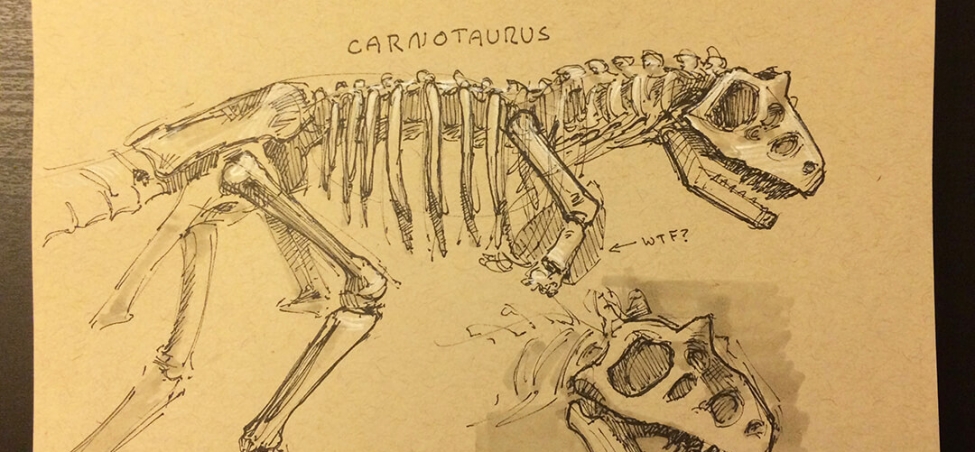 CARNOTAURUS
← WTF?